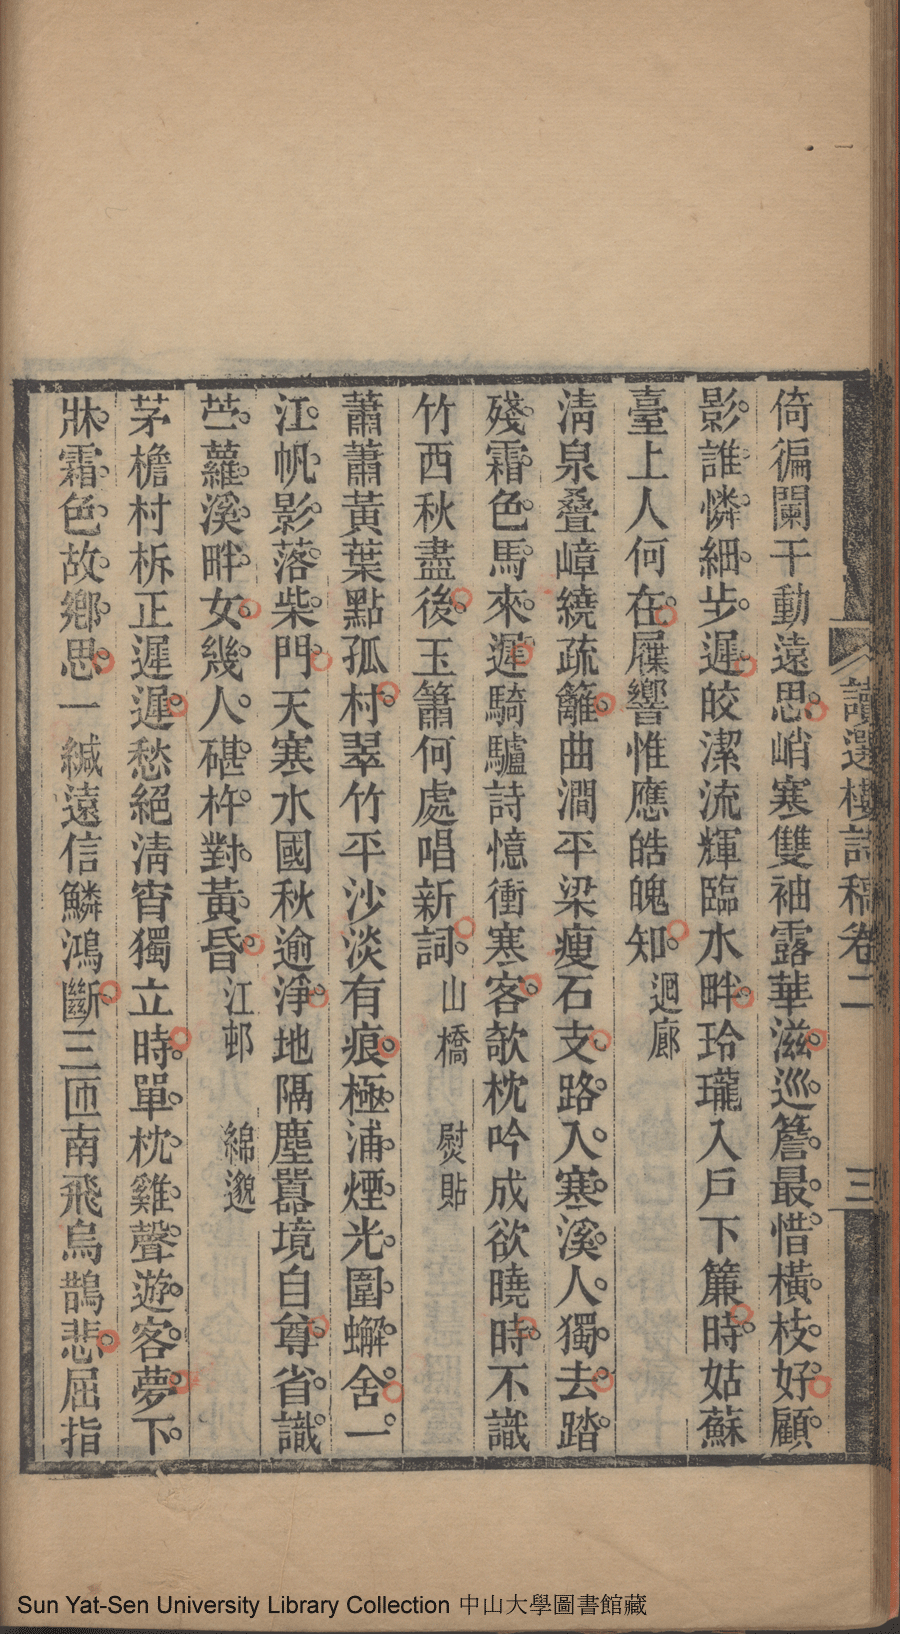 讀選樓詩稿卷二 三
倚徧闌干動遠思峭寒雙袖露華滋巡簷最惜橫枝好顧
影誰憐細步遲皎潔流輝臨水畔玲瓏入戶下簾時姑蘇
臺上人何在屧響惟應皓魄知 迴廊
淸泉疊嶂繞疏籬曲澗平梁瘦石支路入寒溪人獨去踏
殘霜色馬來遲騎驢詩憶衝寒客欹枕吟成欲曉時不識
竹西秋盡後玉簫何處唱新詞 山橋 熨貼
蕭蕭黃葉點孤村翠竹平沙淡有痕極浦煙光圍蠏舍一
江帆影落柴門天寒水國秋逾淨地隔塵囂境自尊省識
苎蘿溪畔女幾人碪杵對黃昏 江邨 綿邈
茅檐村柝正遲遲愁絕淸宵獨立時單枕雞聲遊客夢下
牀霜色故鄉思一緘遠信鱗鴻斷三匝南飛烏鵲悲屈指
Sun Yat-Sen University Library Collection 中山大學圖書館藏